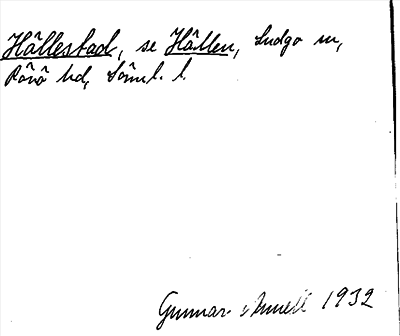 Hållestad, se Hållen, Ludgo sn,
Rönö hd, Söml. l.
Gunnar Annell 1932